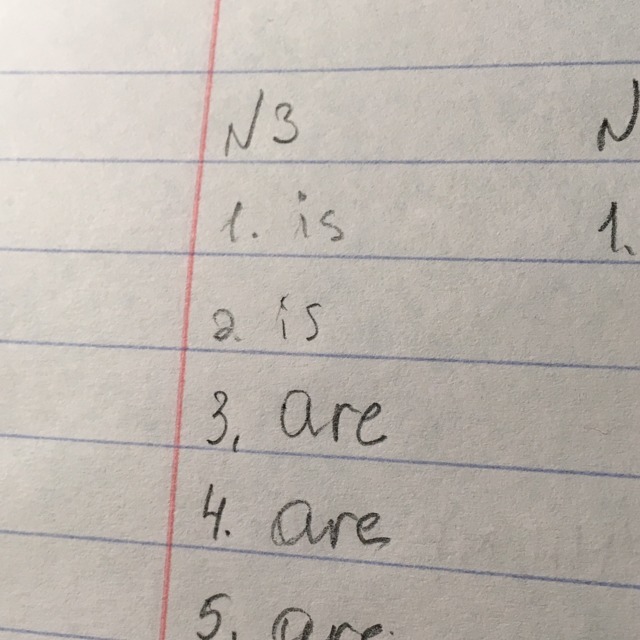 N3
1. is
2. is
3, are
4. are
5. are
N
1.